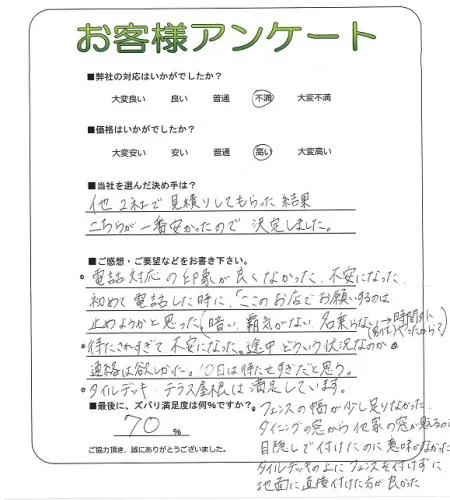 お客様アンケート
■弊社の対応はいかがでしたか?
大変良い 良い 普通 不満 大変不満
■価格はいかがでしたか?
大変安い 安い 普通 高い 大変高い
■当社を選んだ決め手は?
他2社で見積りしてもらった結果
こちらが一番安かったので決定しました。
■ご感想・ご要望などをお書き下さい。
・電話対応の印象が良くなかった、不安になった
初めて電話した時に、「ここのお店でお願いするのは
止めようかと思った(暗い、覇気がない、名乗らない→時間外
だったからか)
・待たされすぎて不安になった。途中どういう状況なのか
連絡は欲しかった。10日は待たせすぎだと思う。
・タイルデッキ・テラス屋根は満足しています。
■最後に、ズバリ満足度は何%ですか?
70 %
ご協力頂き、誠にありがとうございました。
・フェンスの幅が少し足りなかった。
ダイニングの窓から他家の窓が見えるので
目隠しで付けたのに意味がなかった
タイルデッキの上にフェンスを付けずに
地面に直接付けた方が良かった